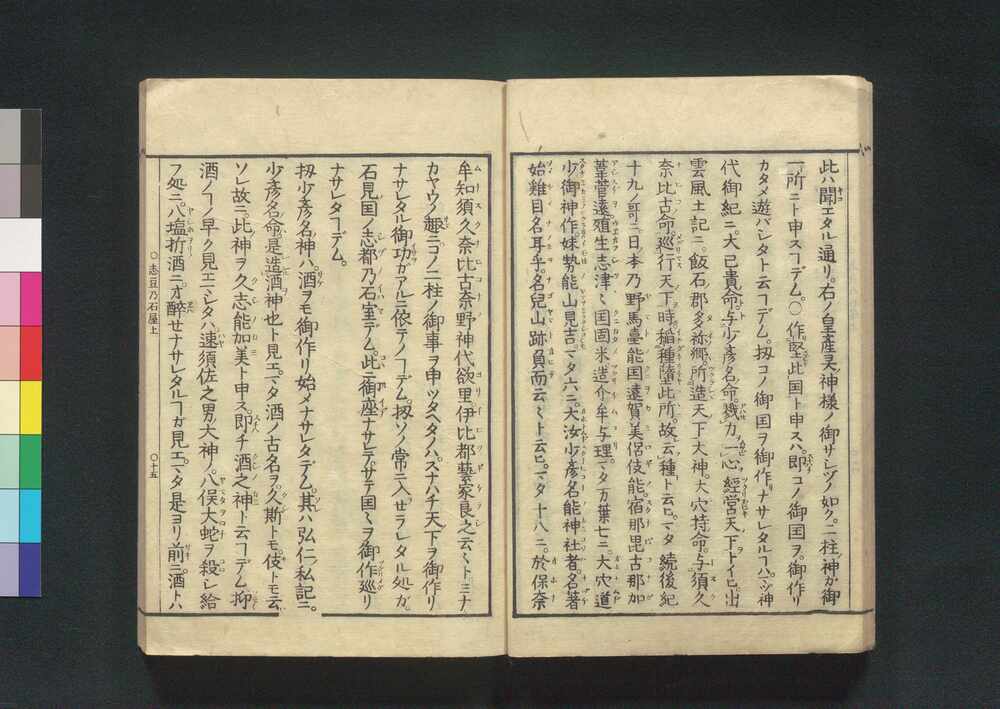 此ハ聞エタル通リ。右ノ皇産灵ノ神様ノ御サシヅノ如ク。二柱ノ神ガ御
一所ニト申スヿデム。○作堅此国ト申スハ。即コノ御国ヲ。御作リ
カタメ遊バシタト云ヿデム。扨コノ御国ヲ御作リナサレタルヿハ。マヅ神
代御紀ニ。大己貴命与少彦名命。戮力一心。経営天下トイヒ。出
雲風土記ニ。飯石郡多祢郷。所造天下大神。大穴持命。与須久
奈比古命。巡行天下時。稲種墮此所。故云種ト云ヒ。マタ続後紀
十九ノ哥ニ。日本乃野馬臺能国遠賀美侶伎能宿那毘古那加
葦菅遠。殖生志津ヽ国固米造介牟与理。マタ万葉七ニ。大穴道
少御神作。妹勢能山見吉。マタ六ニ。大汝少彦名能神社者。名著
始雞目名耳乎。名兒山跡負而云ヽト云ヒ。マタ十八ニ。於保奈
牟知須久奈比古奈野神代欲里伊比都藝家良之云ヽトミナ
カヤウノ趣ニコノ二柱ノ御事ヲ申ツタヘタノハ。スナハチ天下ヲ御作リ
ナサレタル御功ガアルニ依テノヿデム。扨ソノ常ニ入セラレタル処ガ。
石見国ノ志都乃石室デム。此ニ御座ナサレテ。サテ国ヽヲ御作巡リ
ナサレタヿデム。
扨少彦名神ハ。酒ヲモ御作リ始メナサレタデム。其ハ弘仁ノ私記ニ。
少彦名命是造酒神也ト見エ。マタ酒ノ古名ヲ。久斯トモ。伎トモ云。
ソレ故ニ。此神ヲ久志能加美ト申ス。即チ酒之神ト云ヿデム。抑
酒ノヿノ早ク見エマシタハ。速須佐之男大神ノ。八俣大蛇ヲ殺シ給
フ処ニ。八塩折酒ニオ醉セナサレタルヿガ見エ。マタ是ヨリ前ニ。酒トハ
○志豆乃石屋上
○十五